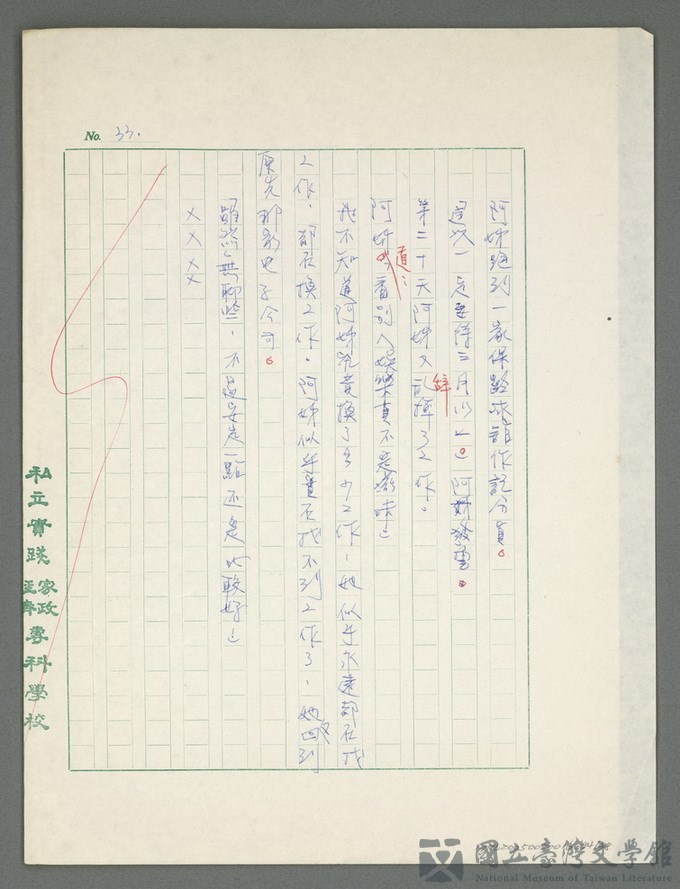 No. 33.
阿姊跑到一家保齡球館作記分員。
這次一定要待三月以上」阿姊發重。
第二十天阿姊又辭掉了工作。
阿姊道:「看別人娛樂真不是滋味」
我不知道阿姊究竟換了多少工作,她似乎永遠都在找
工作,都在換工作。阿姊似乎實在找不到工作了,她又回到
原先那家电子公司。
雖然無聊些,不過安定一點还是比較好」
××××
私立實踐家政專科學校
國立臺灣文學館
National Museum of Taiwan Literature